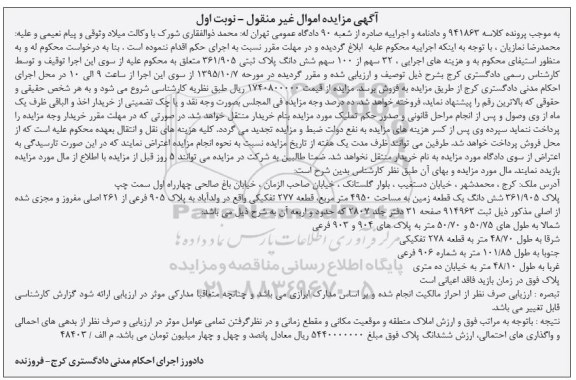 آگهی مزایده اموال غیر منقول - نوبت اول
به موجب پرونده کلاسه ۹۴۱۸۶۳ و دادنامه و اجراییه صادره از شعبه ۹۰ دادگاه عمومی تهران له: محمد ذوالفقاری شورک با وکالت میلاد وثوقی و پیام نعیمی و علیه:
محمدرضا نمازیان ، با توجه به اینکه اجراییه محکوم علیه ابلاغ گردیده و در مهلت مقرر نسبت به اجرای حکم اقدام ننموده است . بنا به درخواست محکوم له و به
منظور استیفای محکوم به و هزینه های اجرایی ، ۳۲ سهم از ۱۰۰ سهم شش دانگ پلاک ثبتی ۳۶۱/۹۰۵ متعلق به محکوم علیه از سوی این اجرا توقیف و توسط
کارشناس رسمی دادگستری کرج بشرح ذیل توصیف و ارزیابی شده و مقرر گردیده در مورخه ۱۳۹۵/۱۰/۷ از سوی این اجرا از ساعت ۹ الی ۱۰ در محل اجرای
احکام مدنی دادگستری کرج از طریق مزایده به فروش برسد. مزایده از قیمت ۱۷۴۰۸۰۰۰۰۰ ریال طبق نظریه کارشناسی شروع می شود و به هر شخص حقیقی و
حقوقی که بالاترین رقم را پیشنهاد نماید، فروخته خواهد شد. ده درصد وجه مزایده فی المجلس بصورت وجه نقد و یا چک تضمینی از خریدار اخذ و الباقی ظرف یک
ماه از وی وصول و پس از انجام مراحل قانونی و صدور حکم تملیک مورد مزایده بنام خریدار منتقل خواهد شد. در صورتی که در مهلت مقرر خریدار وجه مزایده را
پرداخت ننماید سپرده وی پس از کسر هزینه های مزایده به نفع دولت ضبط و مزایده تجدید می گردد. کلیه هزینه های نقل و انتقال بعهده محکوم علیه است که از
محل فروش پرداخت خواهد شد. طرفین می توانند ظرف مدت یک هفته از تاریخ مزایده نسبت به نحوه انجام مزایده اعتراض نمایند که در این صورت تارسیدگی به
اعتراض از سوی دادگاه مورد مزایده به نام خریدار منتقل نخواهد شد. ضمنا طالبین به شرکت در مزایده می توانند ۵ روز قبل از مزایده با اطلاع از مال مورد مزایده
بازدید نمایند. مال مورد مزایده و بهای آن طبق نظر کارشناس بدین شرح است:
آدرس ملک: کرج ، محمدشهر ، خیابان دستغیب ، بلوار گلستانک ، خیابان صاحب الزمان ، خیابان باغ صالحی چهارراه اول سمت چپ
پلاک ۳۶۱/۹۰۵ شش دانگ یک قطعه زمین به مساحت ۴۹۵۰ متر مربع، قطعه ۲۷۷ تفکیکی واقع در ولدآباد به پلاک ۹۰۵ فرعی از ۲۶۱ اصلی مفروز و مجزی شده
از اصلی مذکور ذیل ثبت ۹۱۴۹۶۳ صفحه ۳۱ دفتر جلد ۲۸۰۷ که حدود و اربعه آن به شرح ذیل می باشد:
شمالا به طول های ۵۰/۷۵ و ۵۰/۷۰ متر به پلاک های ۹۰۴ و ۹۰۳ فرعی
شرقا به طول ۴۸/۷۰ متر به قطعه ۲۷۸ تفکیکی
جنوبا به طول ۱۰۱/۸۵ متر به شماره ۹۰۶ فرعی
غربا به طول ۴۸/۱۰ متر به خیابان ده متری
پلاک فوق در زمان بازید فاقد اعیانی است
تبصره : ارزیابی صرف نظر از احراز مالکیت انجام شده و بر اساس مدارک ابرازی می باشد و چنانچه متعاقبا مدارکی موثر در ارزیابی ارائه شود گزارش کارشناسی
قابل تغییر می باشد.
نتیجه : باتوجه به مراتب فوق و ارزش املاک منطقه و موقعیت مکانی و مقطع زمانی و در نظرگرفتن تمامی عوامل موثر در ارزیابی و صرف نظر از بدهی های احمالی
و واگذاری های احتمالی، ارزش ششدانگ پلاک فوق مبلغ ۵۴۴۰۰۰۰۰۰۰ ریال معادل پانصد و چهل و چهار میلیون تومان می باشد. م الف / ۴۸۴۰۳
دادورز اجرای احکام مدنی دادگستری کرج- فروزنده
پایگاه اطلاع رسانی مناقصه و مزایده
۰۲۱-۸۸۳۴۹۶۷۰-۵